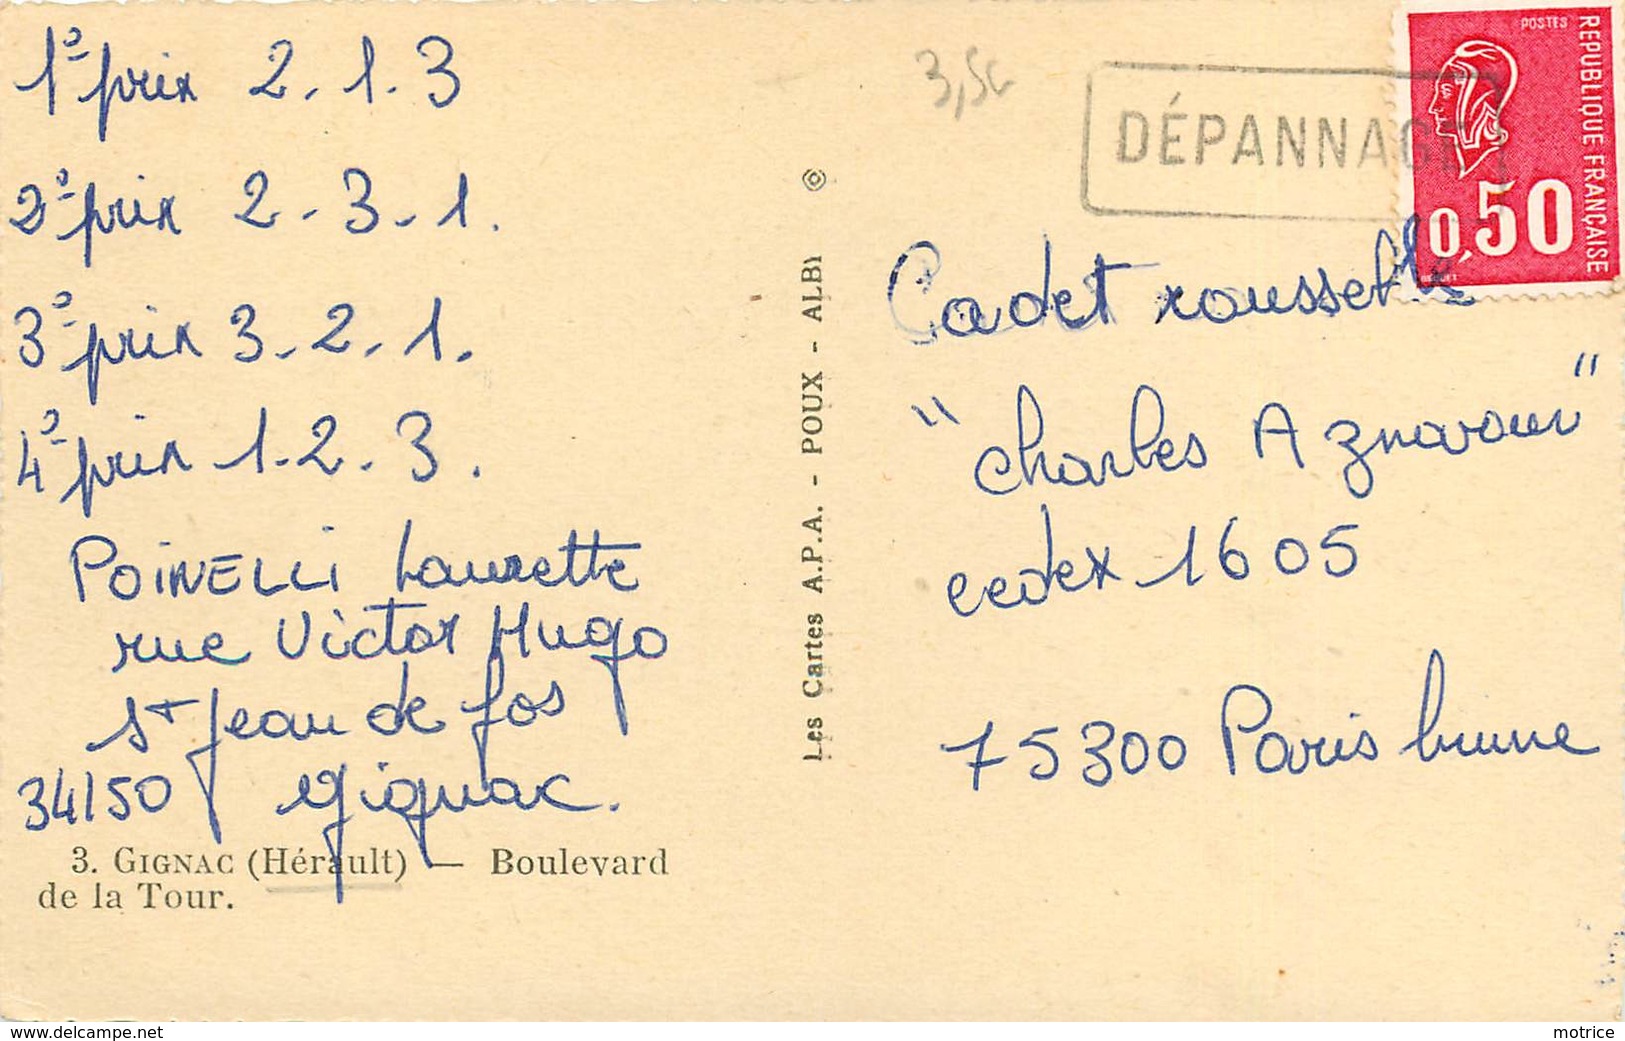 1º prix 2.1.3
2º prix 2-3-1.
3º prix 3-2-1.
4º prix 1-2-3.
POINELLI Laurette
rue Victor Hugo
St Jean de fos
34150 gignac.
3. GIGNAC (Hérault) — Boulevard
de la Tour.
Les Cartes A.P.A. - POUX - ALBI ©
3,50
DÉPANNAGE
POSTES
REPUBLIQUE FRANÇAISE
0,50
Cadet rousselle
"Charles Aznavour"
cedex 1605
75300 Paris brune
www.delcampe.net
motrice